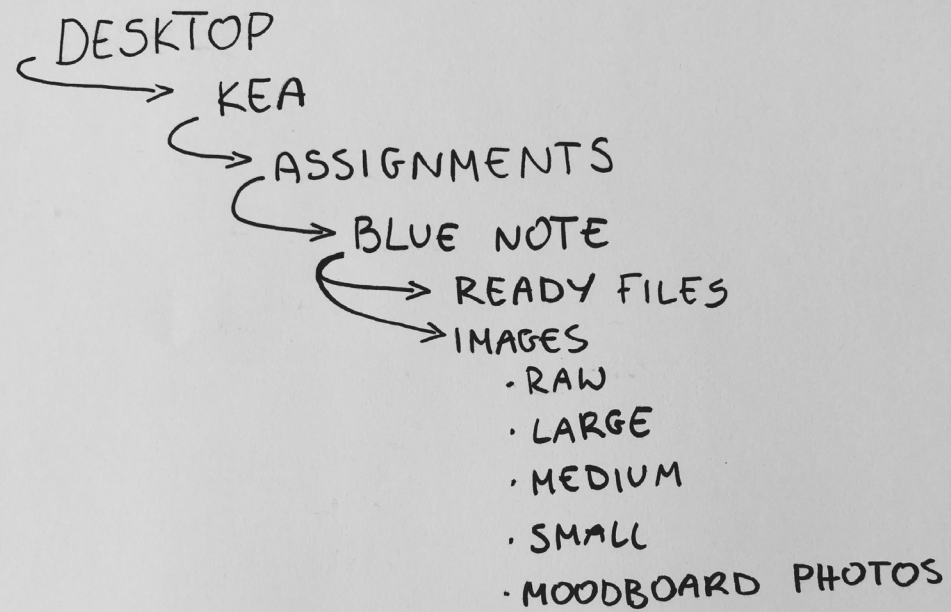 DESKTOP
KEA
ASSIGNMENTS
BLUE NOTE
READY FILES
IMAGES
· RAW
· LARGE
· MEDIUM
· SMALL
· MOODBOARD PHOTOS